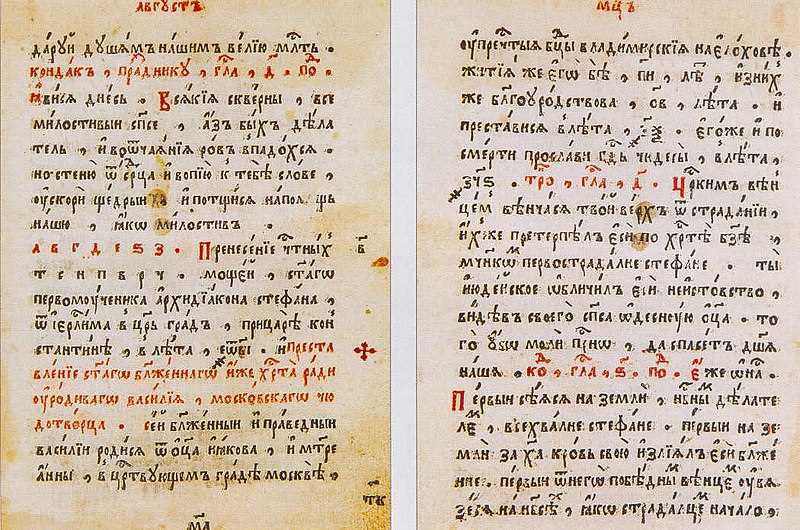 АВГУСТЪ
даруй душамъ нашимъ велїю млть .
кондакъ , праднику , гла , д҃ . по .
ꙗвися днесь . Всякїя скверны , все
милостивый спсе , азъ быхъ дѣла
тель , и во ѿчаянїя ровъ впадохся .
но стеню ѿ срца и вопїю к тебѣ слове ,
ускори щедрый и потщися на помощь
нашю , ꙗкѡ милостивъ .
А В Г Д Е Ѕ З . Пренесенїе чтныхъ
т с и п в р ч . мощей , стагѡ
первомоученика архидїакона стефана ,
ѿ іерлима в црь градъ , при царѣ кон
стантинѣ , в лѣта , . и преста
вленїе стагѡ блженнагѡ иже хрта ради
уродивагѡ василїя , московскагѡ чю
дотворца . сей блженный и праведный
василїи родися ѿ оца иꙗкова , и мтре
анны , в цртвующемъ градѣ москвѣ ,
мца
мцъ
у пречтыя бцы владимирскїя на елоховѣ .
житїя же егѡ бѣ , пи , лѣ , и з них
же благоуродствова , ов , лѣта . и
преставися в лѣта , ҂зх . егоже и по
смерти прослави гдь чюдесы , в лѣта ,
҂зчѕ . тро , гла , д҃ . Црким вѣн
цем вѣнчася твой верхъ ѿ страданїи ,
ихже претерпѣлъ еси по хртѣ бзѣ ,
мчнкѡм первострадалне стефане . ты
июдейское ѡбличилъ еси неистовство ,
видѣвъ своего спса ѡдесную оца . то
го убѡ моли прнѡ , да спасетъ дша
нашя . ко , гла , ѕ҃ . по . Еже ѡ на .
Первый сѣяся на земли , нбный дѣлате
лѣ , всехвалне стефане . первый на зе
мли за ха кровь свою излїялъ еси блже
нне . первый ѿ него побѣдный вѣнцем увя
зеся на нбсѣ , ꙗкѡ страдалцем начало ,